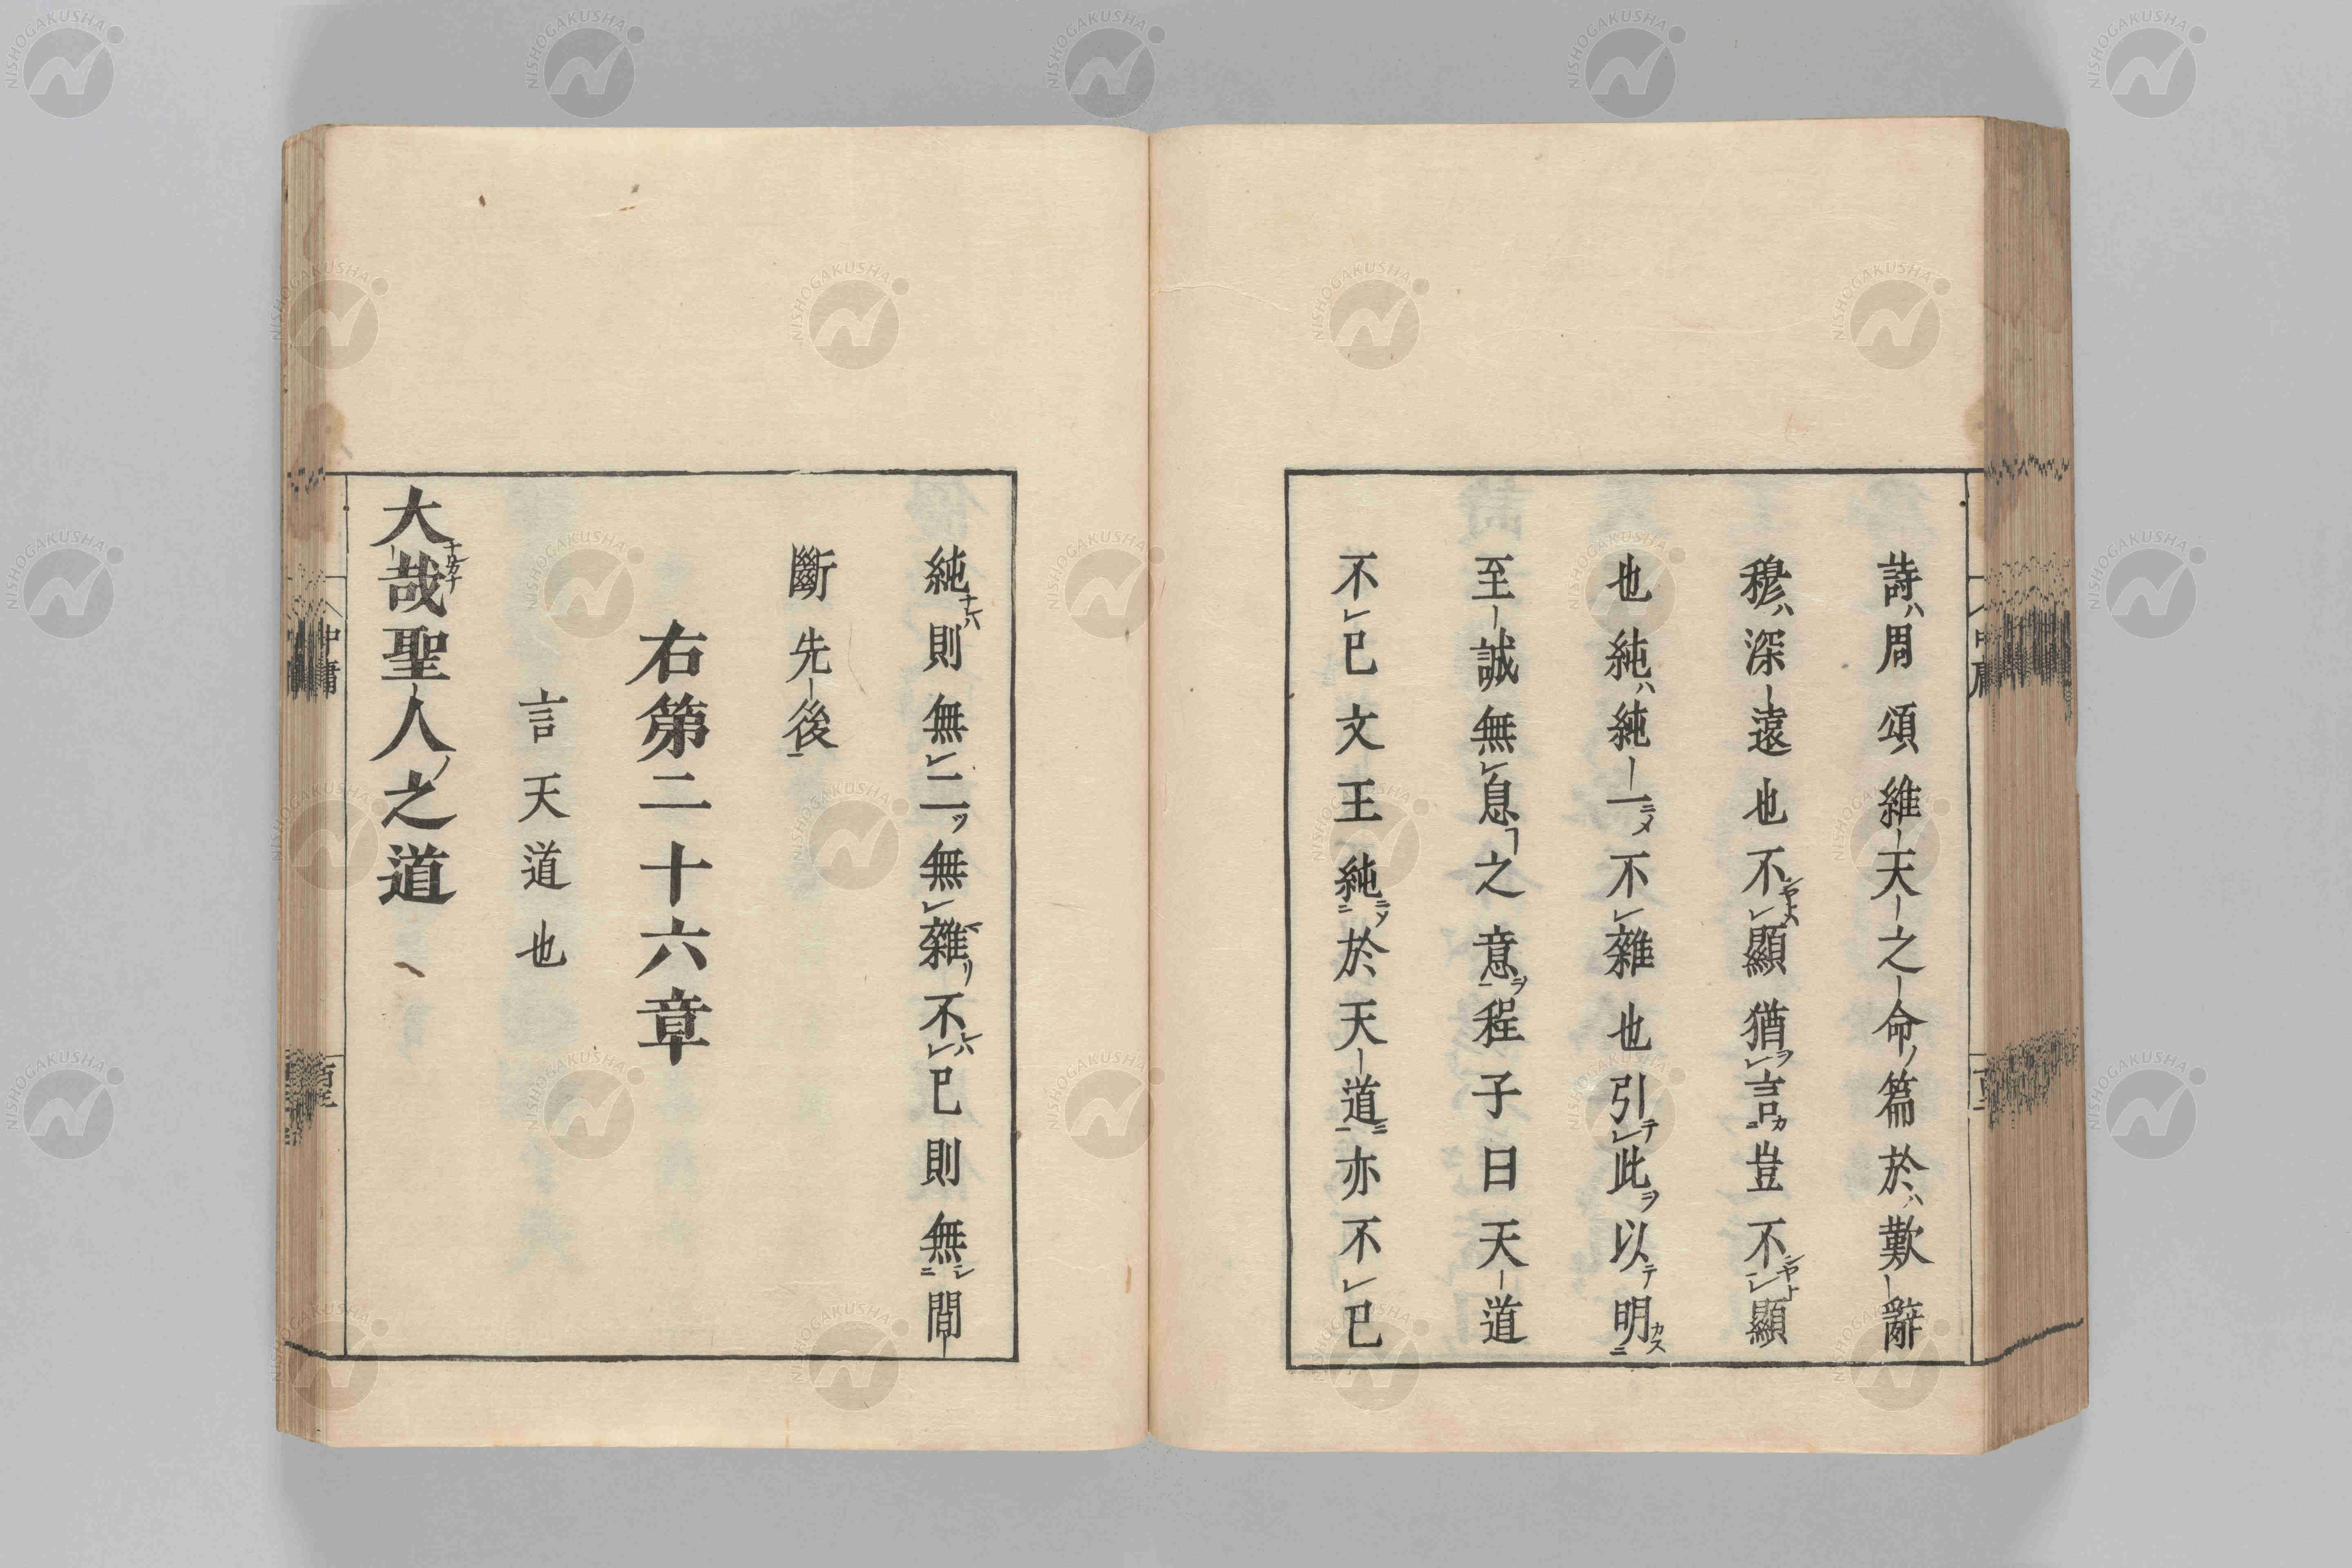 詩周頌維天之命篇於歎辭
穆深遠也不顯猶言豈不顯
也純純一不雜也引此以明
至誠無息之意程子曰天道
不已文王純於天道亦不已
純則無二無雜不已則無間
斷先後
右第二十六章
言天道也
大哉聖人之道
中庸
NISHOGAKUSHA